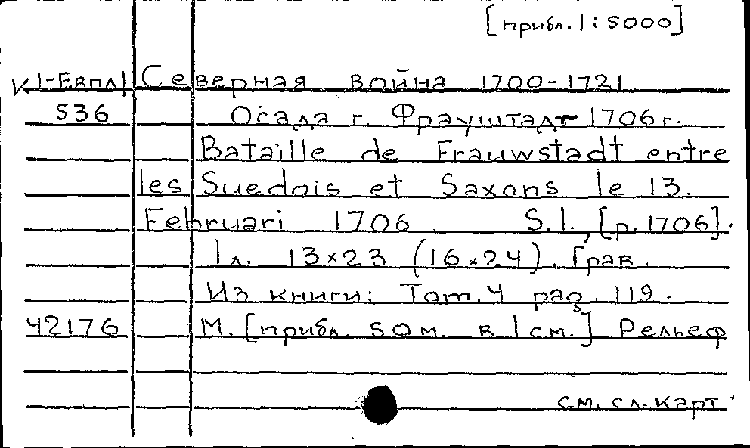 [прибл. 1:5000]
К 1-Евпл1 Северная война 1700-1721
536 Осада г. Фрауштадт 1706 г.
Bataille de Frauwstadt entre
les Suedois et Saxons le 13.
Februari 1706 S.l., [p. 1706].
1 л. 13×23 (16×24). Грав.
Из книги: Tom. 4 pag. 119.
42176 М. [прибл. 50 м. в 1 см.] Рельеф
см. сл. карт.